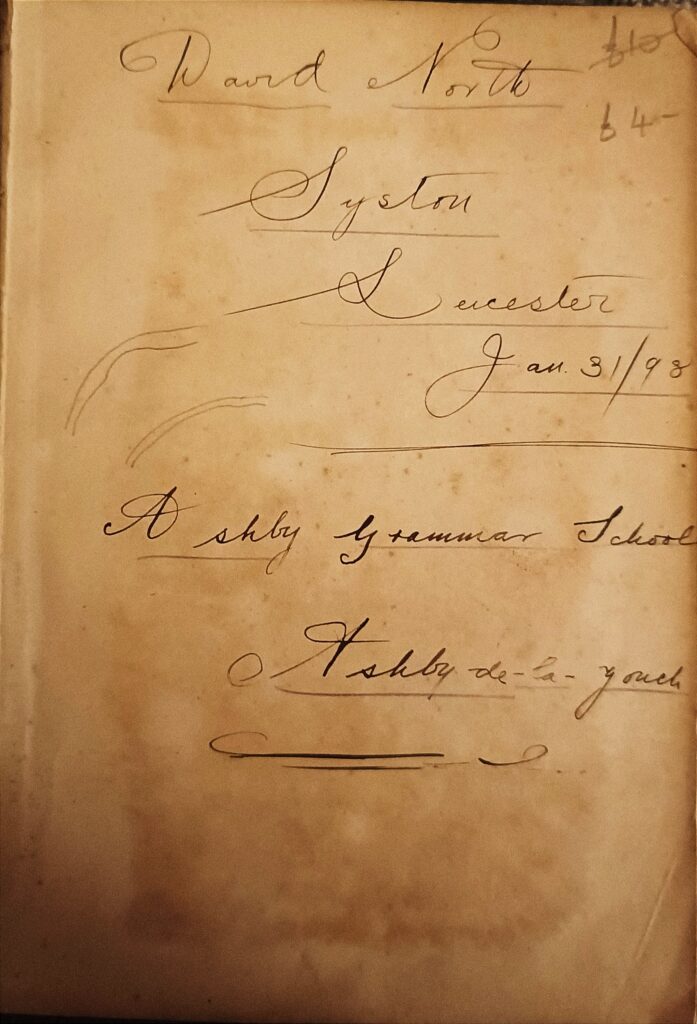 David North
Syston
Leicester
Jan. 31/98
Ashby Grammar School
Ashby-de-la-Zouch